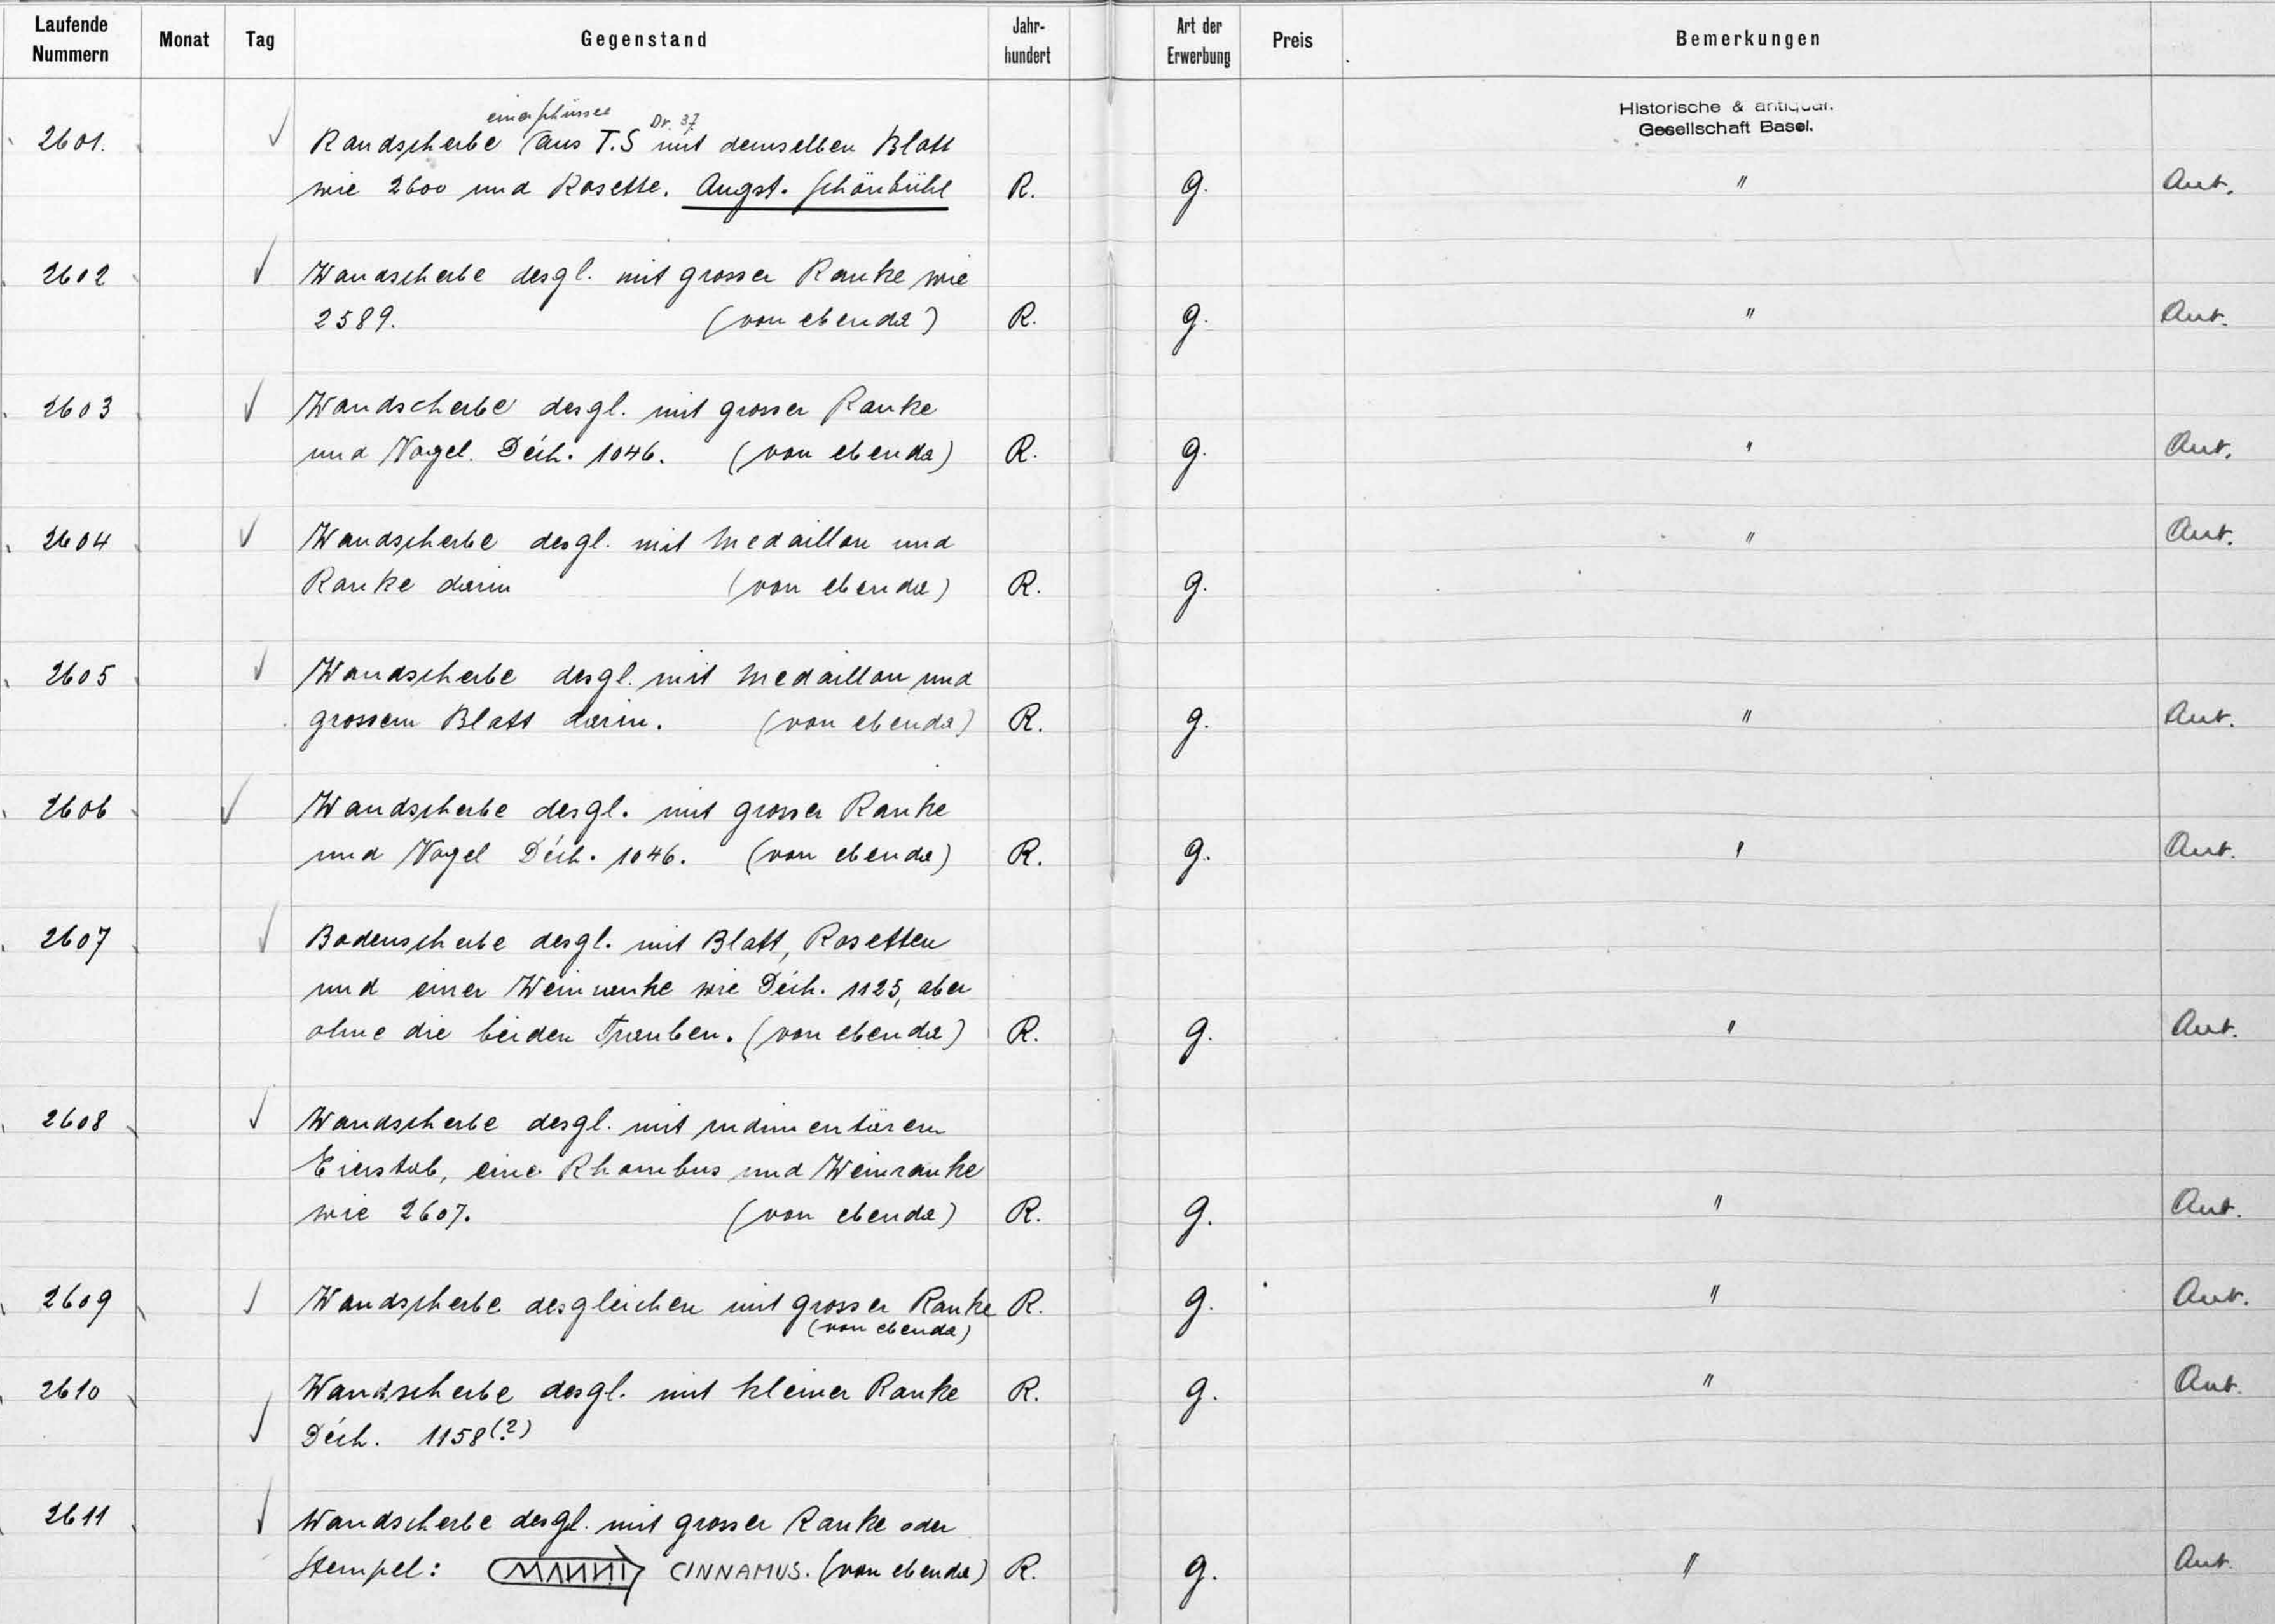 Laufende Nummern Monat Tag Gegenstand Jahr-hundert Art der Erwerbung Preis Bemerkungen
Historische & antiquar.
Gesellschaft Basel.
einer Schüssel Dr. 37
2601. ✓ Randscherbe aus T.S mit demselben Blatt
wie 2600 und Rosette. Augst. Schönbühl R. g. " Ant.
2602 ✓ Wandscherbe desgl. mit grosser Ranke wie
2589. (von ebenda) R. g. " Ant.
2603 ✓ Wandscherbe desgl. mit grosser Ranke
und Vogel. Déch. 1046. (von ebenda) R. g. " Ant.
2604 ✓ Wandscherbe desgl. mit Medaillon und " Ant.
Ranke darin (von ebenda) R. g.
2605 ✓ Wandscherbe desgl. mit Medaillon und
grossem Blatt darin. (von ebenda) R. g. " Ant.
2606 ✓ Wandscherbe desgl. mit grosser Ranke
und Vogel Déch. 1046. (von ebenda) R. g. " Ant.
2607 ✓ Bodenscherbe desgl. mit Blatt, Rosetten
und einer Weinranke wie Déch. 1125, aber
ohne die beiden Trauben. (von ebenda) R. g. " Ant.
2608 ✓ Wandscherbe desgl. mit rudimentärem
Eierstab, eine Rhombus und Weinranke
wie 2607. (von ebenda) R. g. " Ant.
2609 ✓ Wandscherbe desgleichen mit grosser Ranke R. g. " Ant.
(von ebenda)
2610 Wandscherbe desgl. mit kleiner Ranke R. g. " Ant.
✓ Déch. 1158(?)
2611 ✓ Wandscherbe desgl. mit grosser Ranke oder
Stempel: CINNAMUS. (von ebenda) R. g. " Ant.